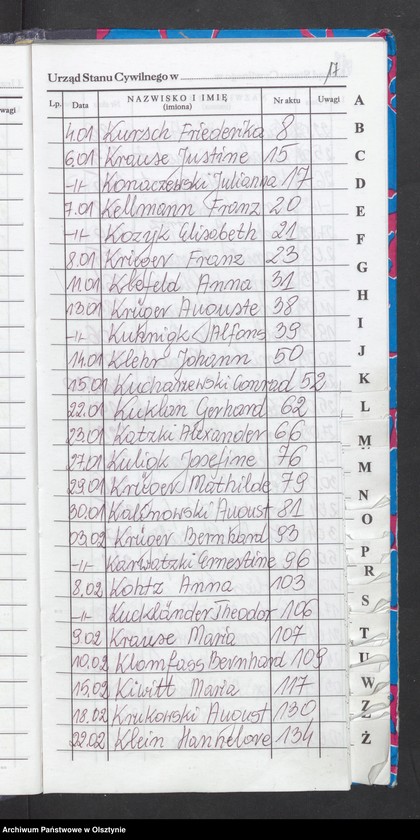 Urząd Stanu Cywilnego w 17
Lp. Data NAZWISKO I IMIĘ (imiona) Nr aktu Uwagi
4.01 Kursch Friederika 8
6.01 Krause Justine 15
-11- Konaczewski Julianna 17
7.01 Kellmann Franz 20
-11- Kozyk Elisabeth 21
8.01 Krieger Franz 23
11.01 Klefeld Anna 31
13.01 Krüger Auguste 38
-11- Kuknigk Alfons 39
14.01 Klehr Johann 50
15.01 Kucharzewski Conrad 52
22.01 Kuklan Gerhard 62
23.01 Katzki Alexander 66
27.01 Kuligk Josefine 76
29.01 Krüger Mathilde 79
30.01 Kalinowski August 81
03.02 Krüger Bernhard 93
-11- Karwatzki Ernestine 96
8.02 Kohtz Anna 103
-11- Kuckländer Theodor 106
9.02 Krause Maria 107
10.02 Klomfass Bernhard 109
15.02 Kiwitt Maria 117
18.02 Krukowski August 130
22.02 Klein Hannelore 134
A
B
C
D
E
F
G
H
I
J
K
L
M
M
N
O
P
R
S
T
U
W
Z
Ż
wagi
Archiwum Państwowe w Olsztynie